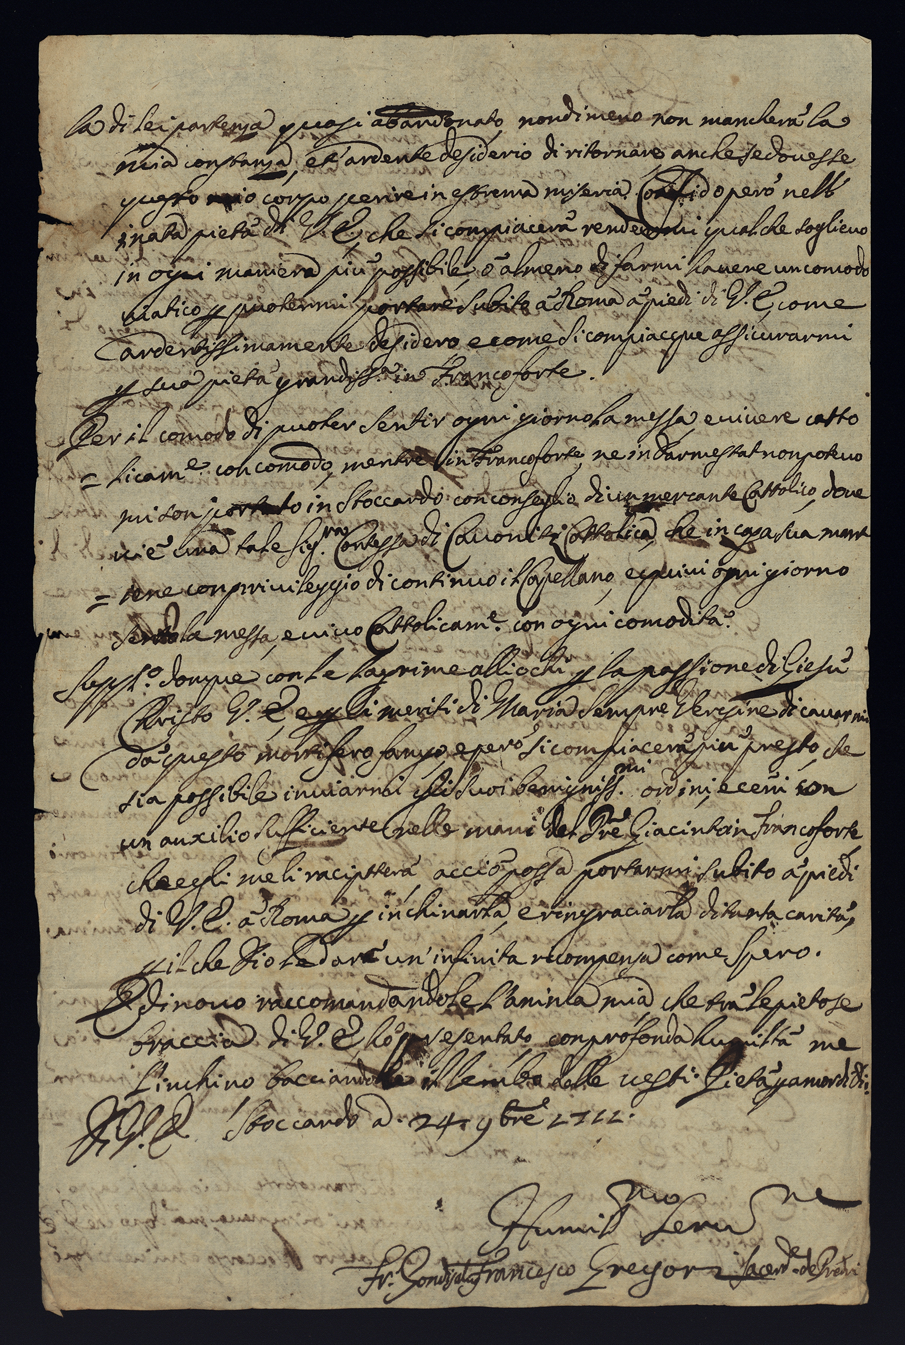 la di lei partenza quasi abandonato, nondimeno non mancherà la
mia constanza, et ardente desiderio di ritornare anche se dovesse
questo mio corpo perire in estrema miseria. Confido però nell
inata pietà di V. E. che si compiacerà rendermi qualche soglievo
in ogni maniera più possibile, ò almeno di farmi havere un comodo
viatico p puotermi portare subito à Roma à piedi di V. E. come
ardentissimamente desidero e come si compiacque assicurarmi
p sua pietà grandiss.a in Francoforte.
Per il comodo di puoter sentir ogni giorno la messa, e vivere catto
= licam.e con comodo, mentre in Francoforte, ne in Darmestat non potevo
mi son portato in Stoccardo con conseglio di un mercante Cattolico, dove
vi è una tale Sig.ra Contessa di Cattolica, che in casa sua mant
= iene con privileggio di continuo il Capellano, e quivi ogni giorno
sento la messa, e vivo Cattolicam.e con ogni comodità.
Supp.o donque con le lagrime alli ochi p la passione di Giesù
Christo V. E. e p li meriti di Maria sempre Vergine di cavarmi
da questo mortifero fango, e però si compiacerà più presto, che
sia possibile inviarmi li suoi benigniss.mi ordini, e ceñi con
un auxilio sufficiente nelle mani del Pre Giacinto in Francoforte
che egli me li racipitterà acciò possa portarmi subito à piedi
di V. E. à Roma p inchinarla, e ringraciarla di tanta carità,
p il che Dio le darà un' infinita ricompensa come spero.
E di novo raccomandandole l'anima mia, che trà le pietose
braccia di V. E. hò presentato con profonda humiltà me
l'inchino bacciandole il lembo delle vesti. Pietà p amor di Di:
Di V. E. Stoccardo a. 24. 9bre 1711.
Humil.mo Serv.re
Fr. Francesco Gregori Sacerd.e de Pred.ri